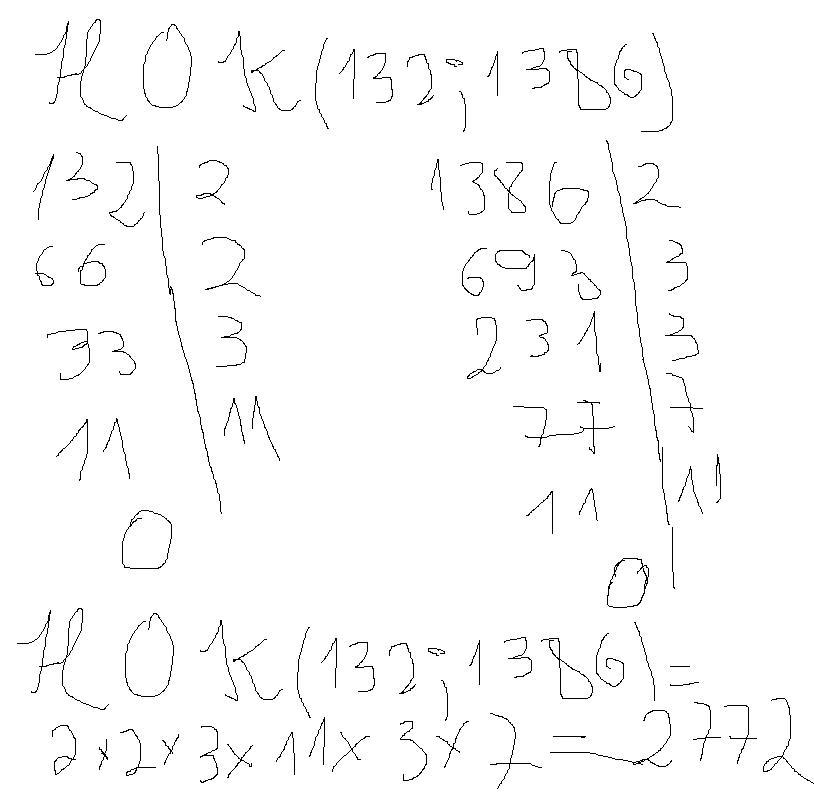 НОК(132;1386)
132 | 2 1386 | 2
66 | 2 693 | 3
33 | 3 231 | 3
11 | 11 77 | 7
0 11 | 11
0
НОК(132;1386)=
2×2×3×11×3×7=2772